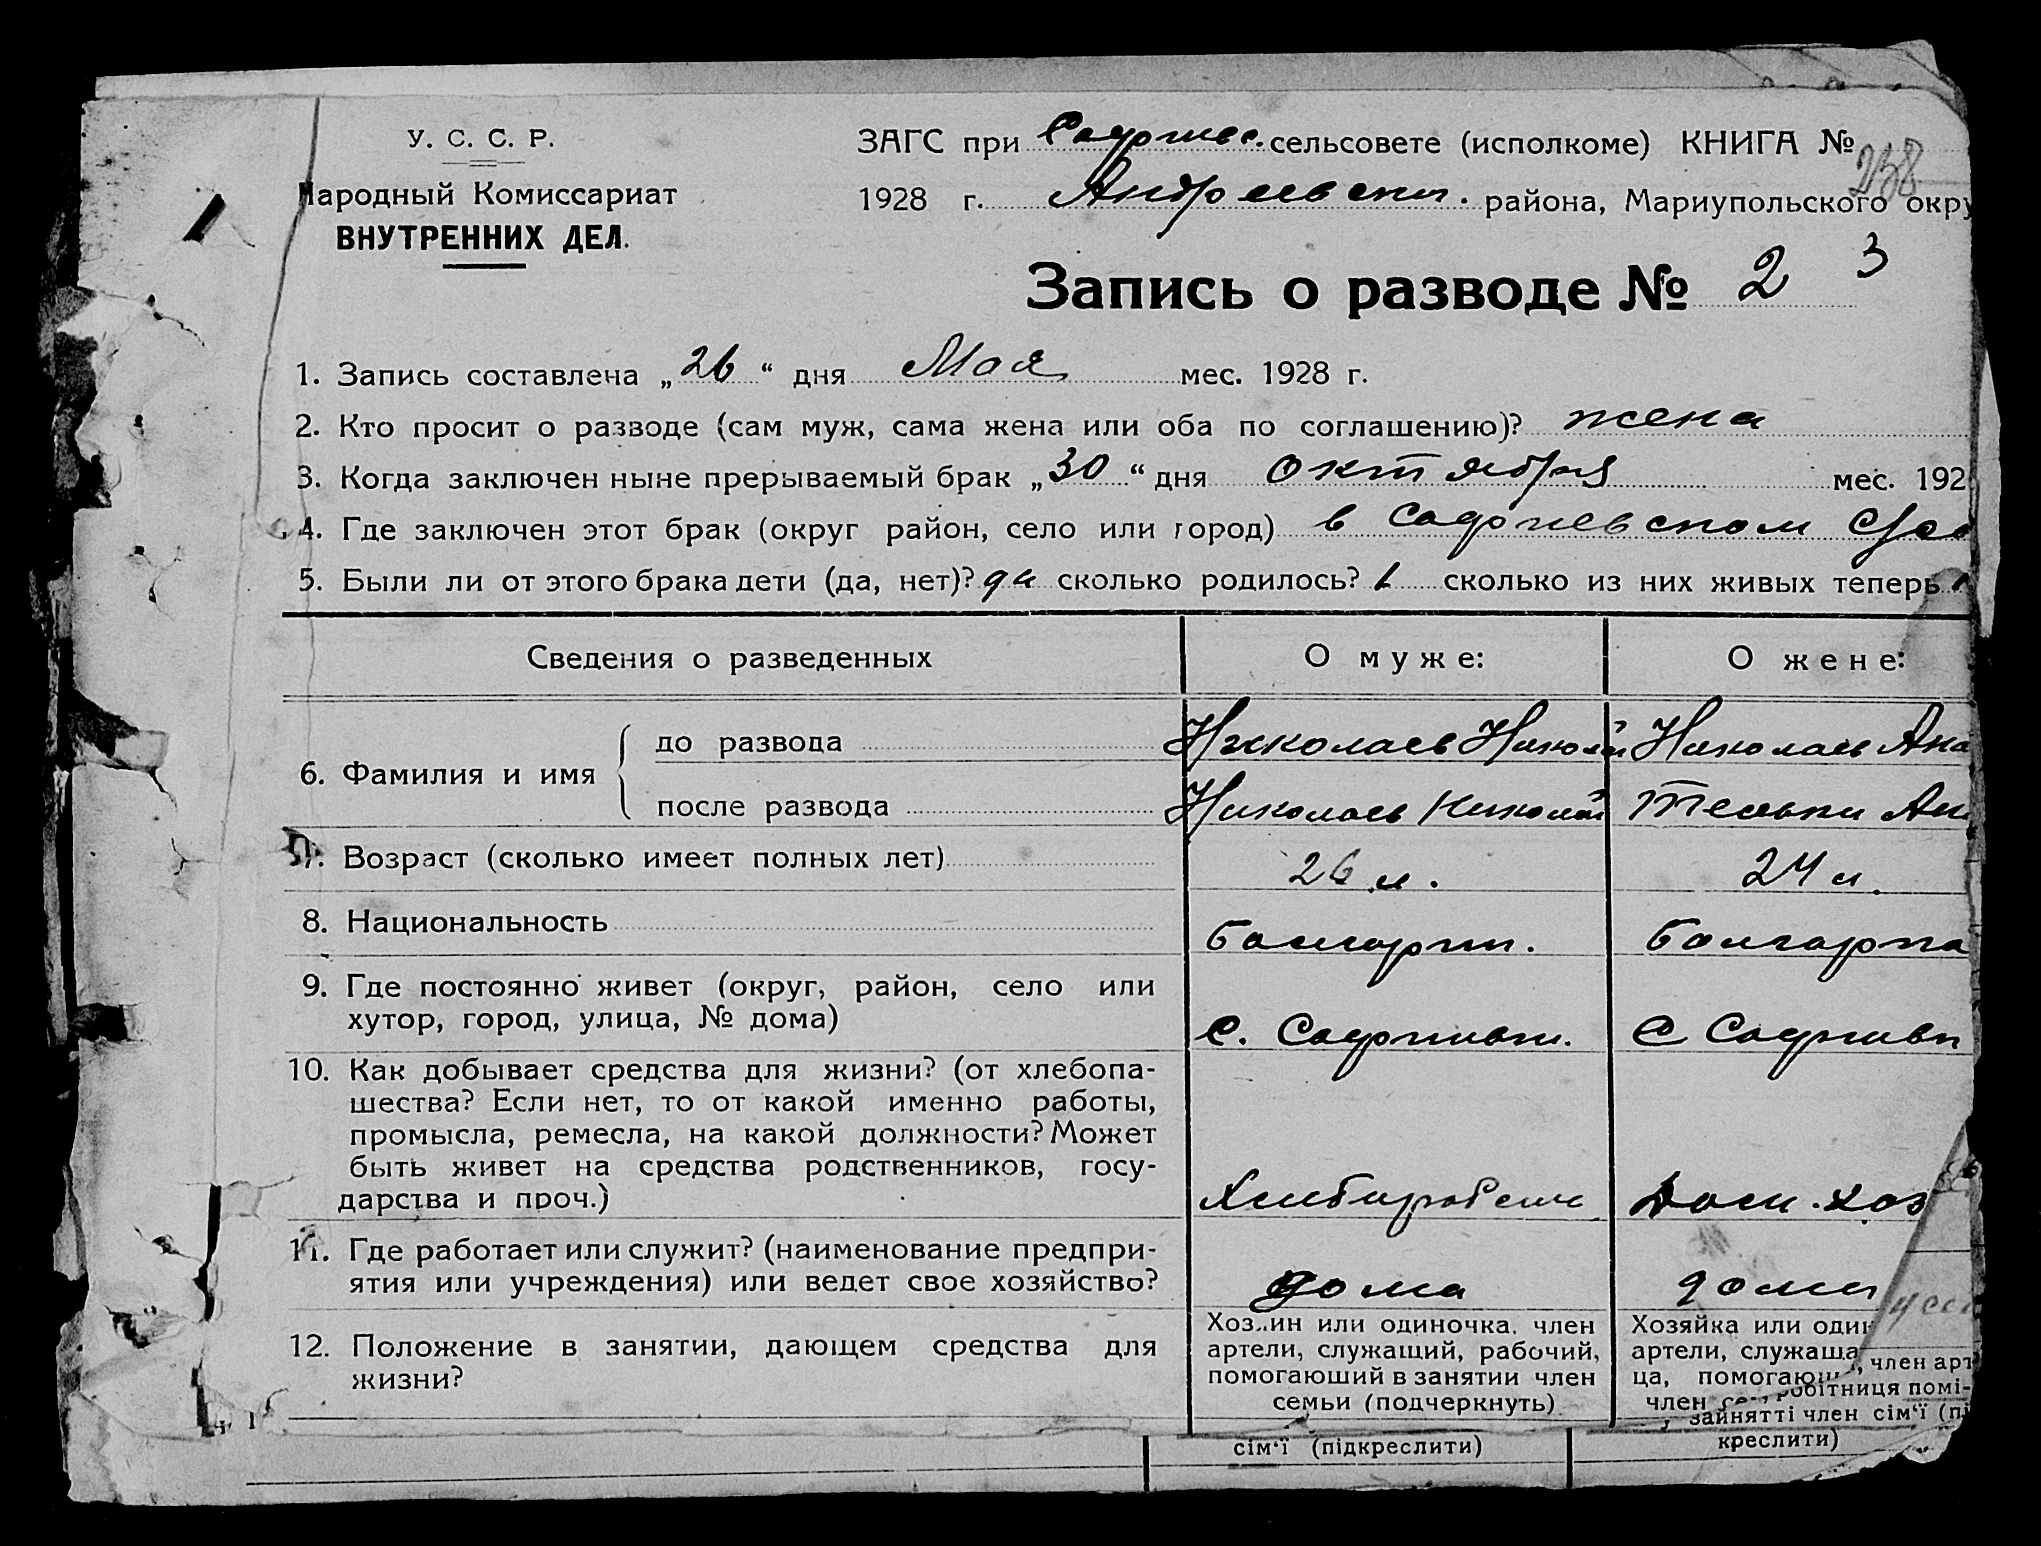 У. С. С. Р.
Народный Комиссариат
ВНУТРЕННИХ ДЕЛ.
ЗАГС при сельсовете (исполкоме) КНИГА №
238
1928 г. Андреевски. района, Мариупольского окру
Запись о разводе № 2 3
1. Запись составлена „26“ дня Мая мес. 1928 г.
2. Кто просит о разводе (сам муж, сама жена или оба по соглашению)? жена
3. Когда заключен ныне прерываемый брак „30“ дня октября мес. 192
4. Где заключен этот брак (округ район, село или город) в
5. Были ли от этого брака дети (да, нет)? да сколько родилось? 1 сколько из них живых теперь
Сведения о разведенных О муже: О жене:
6. Фамилия и имя
до развода Николаев Николай Николаев Ана
после развода Николаев Николай Ан
7. Возраст (сколько имеет полных лет) 26 л. 24 л.
8. Национальность болгарин. болгарка
9. Где постоянно живет (округ, район, село или
хутор, город, улица, № дома) с. с
10. Как добывает средства для жизни? (от хлебопа-
шества? Если нет, то от какой именно работы,
промысла, ремесла, на какой должности? Может
быть живет на средства родственников, госу-
дарства и проч.) Дом. хоз
11. Где работает или служит? (наименование предпри-
ятия или учреждения) или ведет свое хозяйство? дома дома
12. Положение в занятии, дающем средства для
жизни?
Хозяин или одиночка, член
артели, служащий, рабочий,
помогающий в занятии член
семьи (подчеркнуть)
Хозяйка или один
артели, служаща
ца, помогающ
член се
, член арт
робітниця помі-
зайнятті член сім'ї (пі
креслити)
сім'ї (підкреслити)